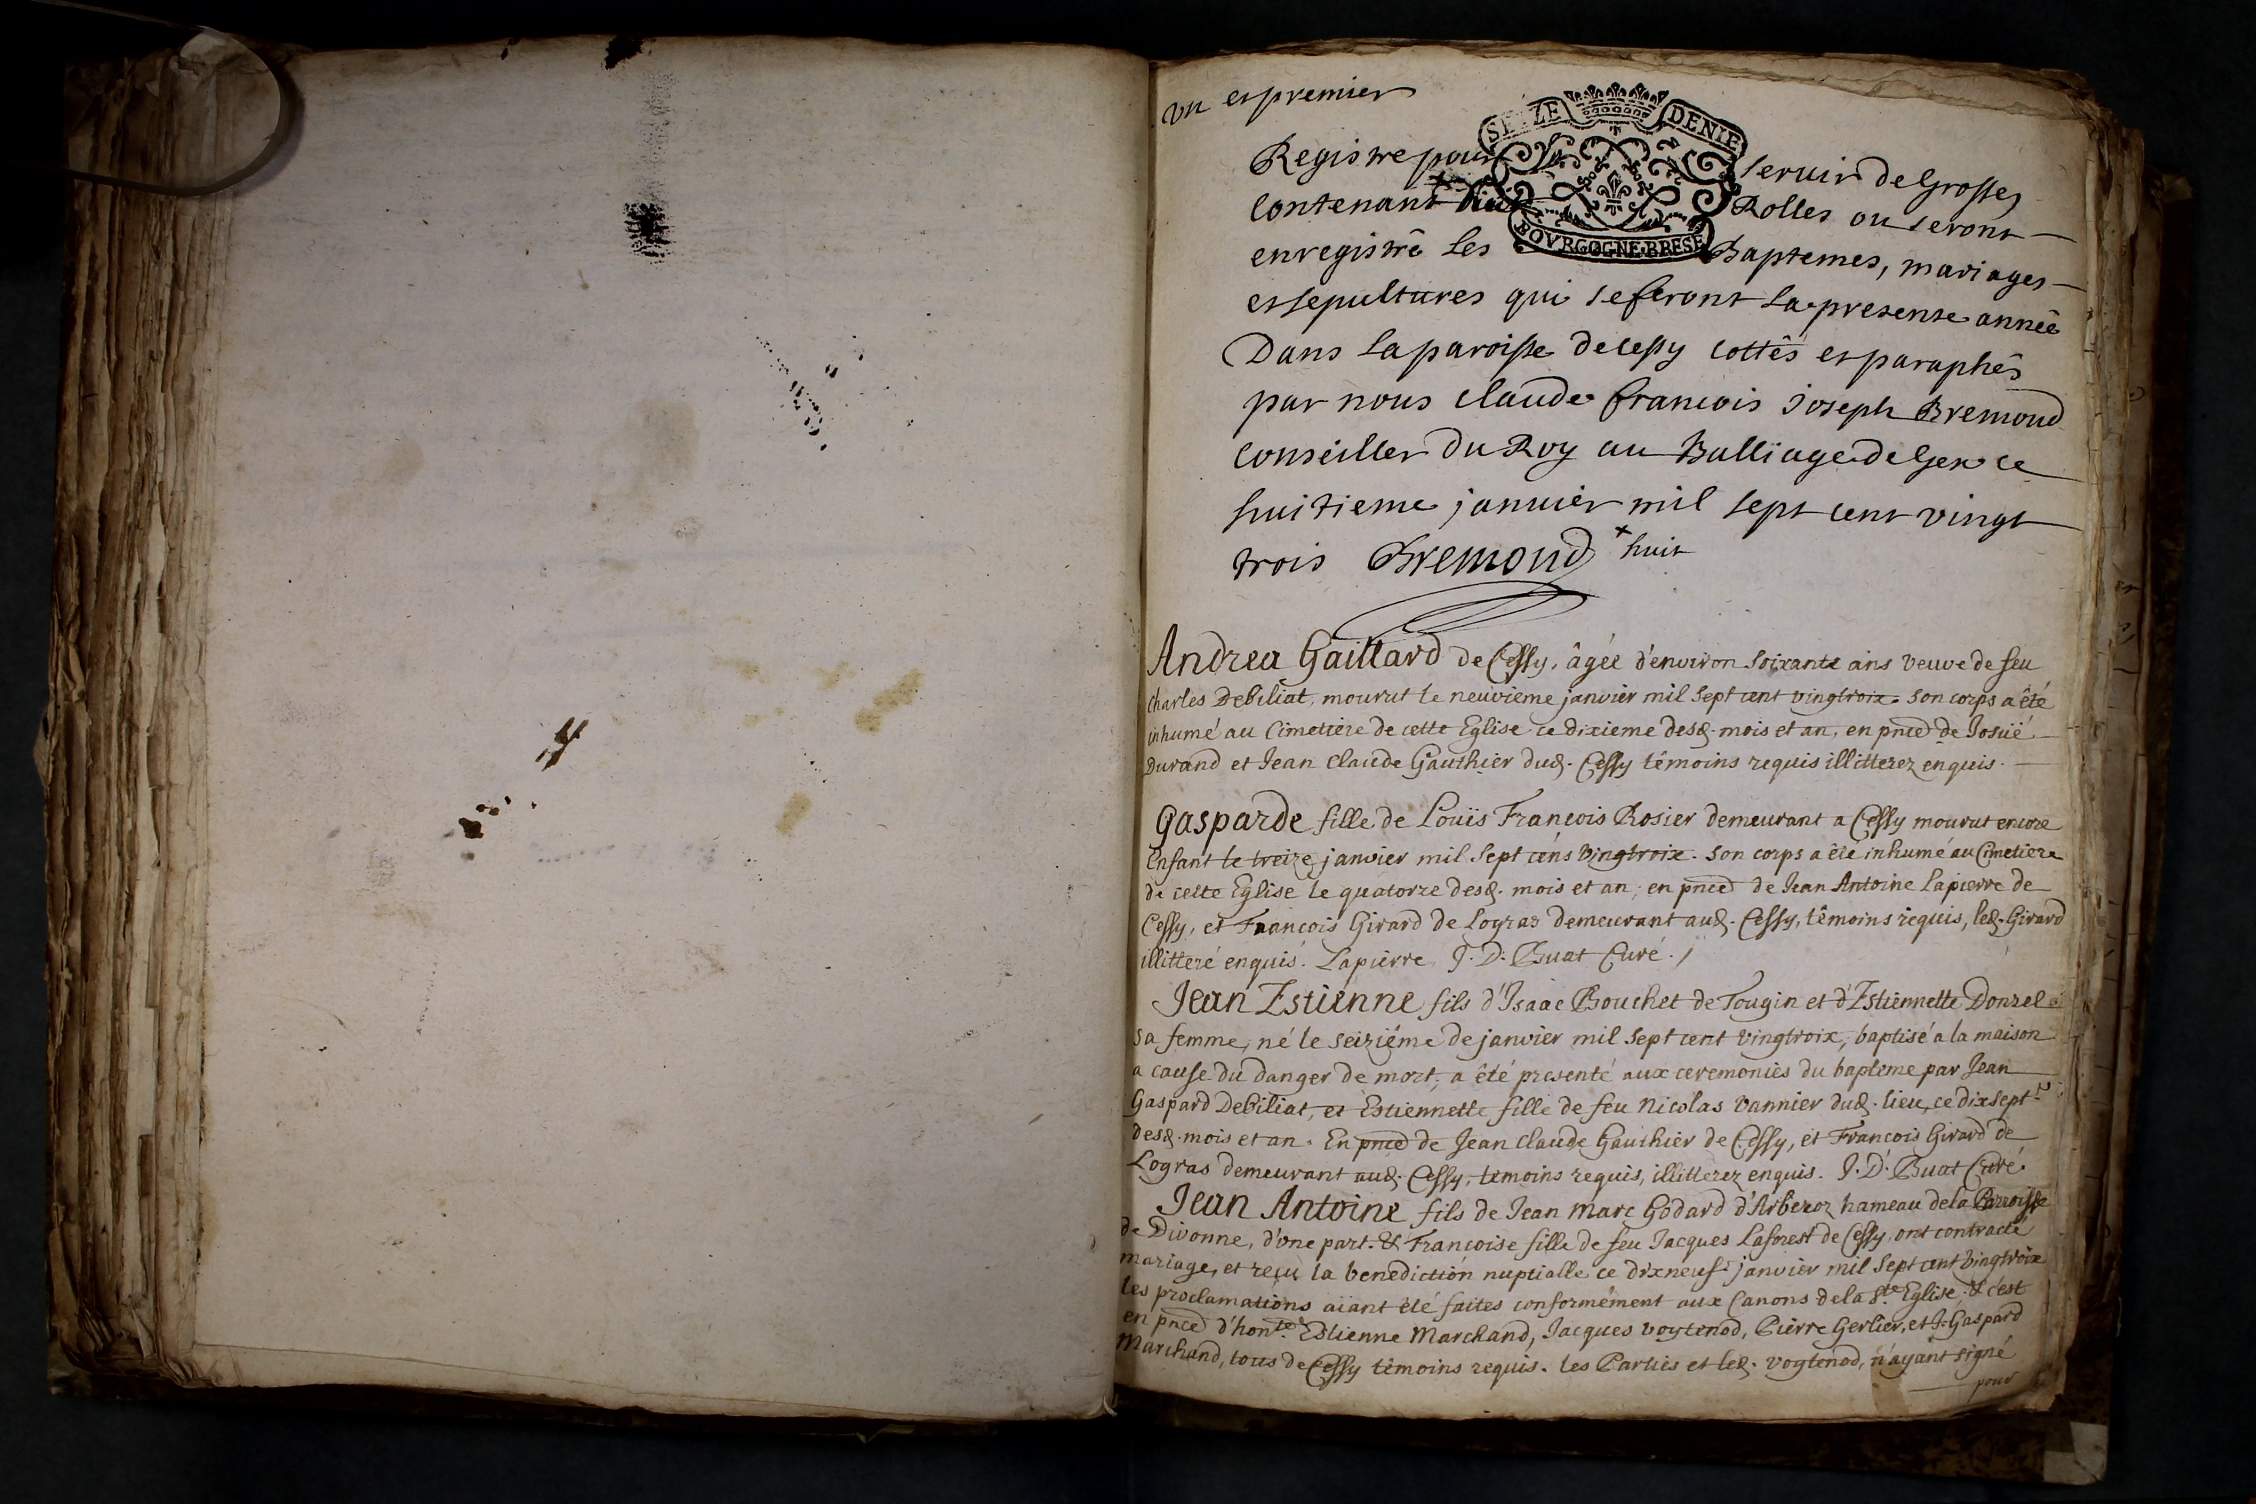 un et premier
SEIZE DENIE
Registre pour servir de Grosse
contenant Rolles ou seront
BOVRGOGNE·BRESE
enregistré les Baptemes, mariages
et sepultures qui se feront la presente année
Dans la paroisse de Cessy cottés et paraphés
par nous Claude francois Joseph Bremond
conseiller Du Roy au Balliage de Gex ce
huitieme janvier mil sept cent vingt
trois Bremond x huit
Andrea Gaillard de Cessy, âgée d'environ soixante ans veuve de feu
Charles Debiliat, mourut le neuvieme janvier mil sept cent vingtroix. son corps a êté
inhumé au Cimetiere de cette Eglise ce dixieme desd. mois et an, en pnce de Josüé
Durand et Jean Claude Gauthier dud. Cessy têmoins requis illitterez enquis.
Gasparde fille de Louïs François Rosier demeurant a Cessy mourut encore
Enfant le treize janvier mil sept cens vingtroix. son corps a êté inhumé au Cimetiere
de cette Eglise le quatorze desd. mois et an, en pnce de Jean Antoine Lapierre de
Cessy, et François Girard de Logras demeurant aud. Cessy, têmoins requis, led. Girard
illitteré enquis. Lapierre J. D. Buat Curé.
Jean Estienne fils d'Isaac Bouchet de Tougin et d'Estiennette Donzel
sa femme, né le seiziéme de janvier mil sept cent vingtroix, baptisé a la maison
a cause du danger de mort, a êté presenté aux ceremonies du bapteme par Jean
Gaspard Debiliat, et Estiennette fille de feu Nicolas Vannier dud. lieu, ce dixsept
desd. mois et an. En pnce de Jean Claude Gauthier de Cessy, et François Girard de
Logras demeurant aud. Cessy, temoins requis, illitterez enquis. J. D. Buat Curé.
Jean Antoine fils de Jean Marc Godard d'Arberoz hameau de la Parroisse
de Divonne, d'une part. & Françoise fille de feu Jacques Laforest de Cessy, ont contracté
mariage, et reçu la benediction nuptialle ce dixneuf janvier mil sept cent vingtroix
les proclamations aïant êté faites conformément aux Canons de la Ste Eglise. & c'est
en pnce d'honte. Estienne Marchand, Jacques Voytenod, Pierre Gerlier, et J. Gaspard
Marchand, tous de Cessy têmoins requis. les Parties et led. Voytenod, n'ayant signé
pour